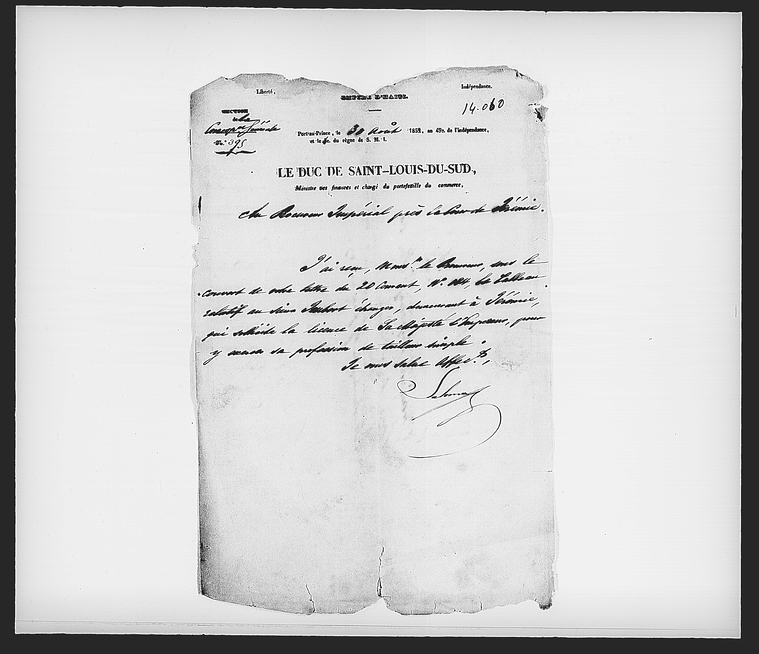 Liberté, Indépendance.
EMPIRE D'HAITI.
14.060
SECTION
de la
Correspce Générale
No. 395
Port-au-Prince, le 30 Août 1852, an 49e. de l'indépendance,
et le de. du règne de S. M. I.
LE DUC DE SAINT-LOUIS-DU-SUD,
Ministre des finances et chargé du portefeuille du commerce,
Au Procureur Impérial près la Cour de Jérémie.
J'ai reçu, Monsr. le Procureur, sous le
couvert de votre lettre du 20 Courant, No. 114, le Tableau
relatif au Sieur étranger, demeurant à Jérémie,
qui sollicite la licence de Sa Majesté L'Empereur, pour
y exercer sa profession de tailleur simple.
Je vous salue affec.t,